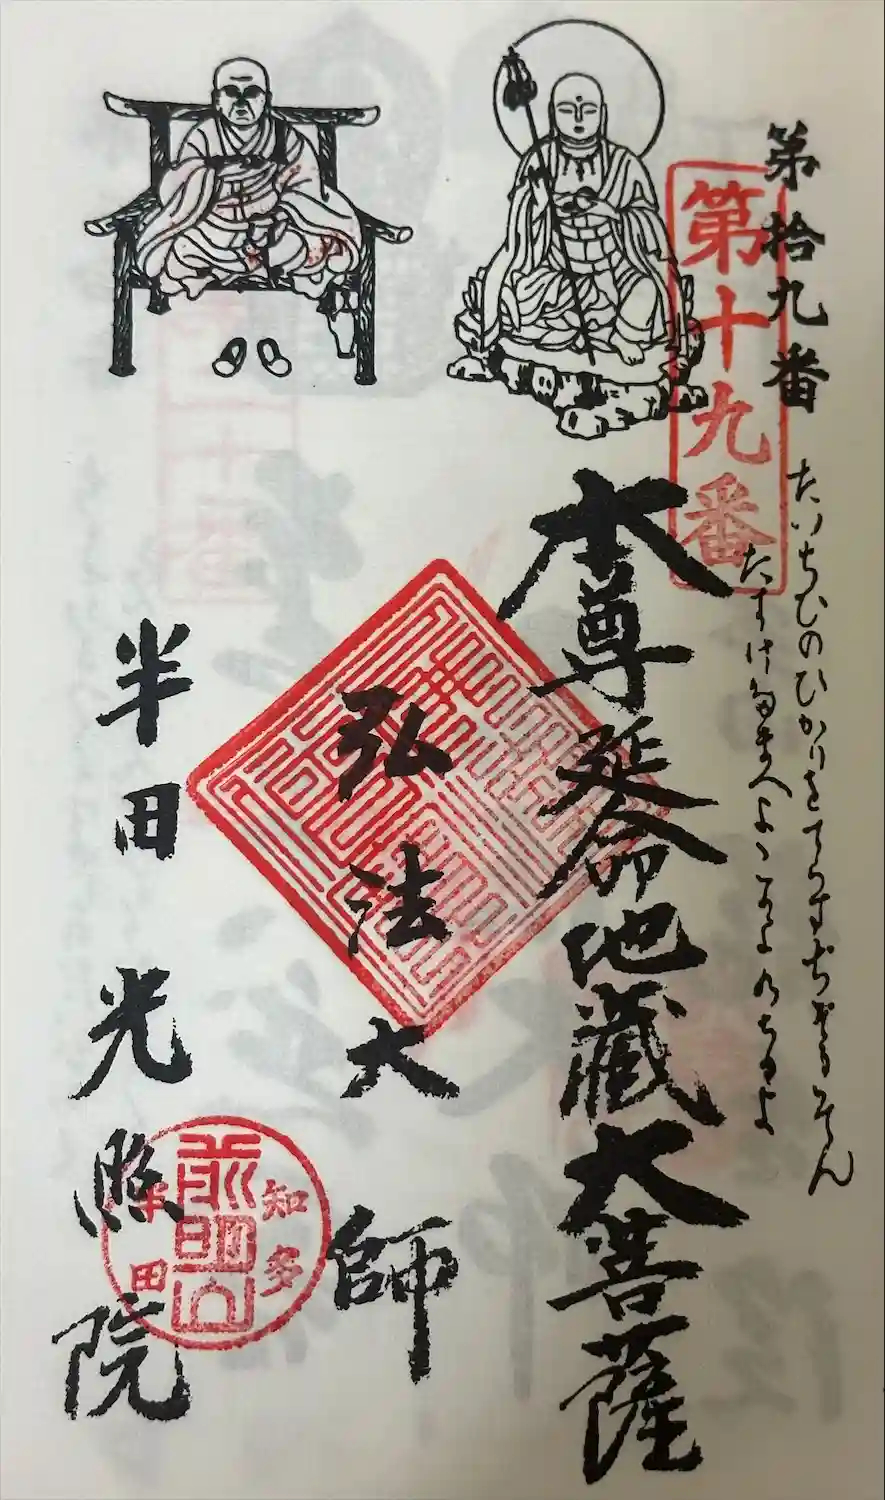 第拾九番
第十九番
たいちひのひかりをてらすぢぞうそん
たすけたまへよこのよのちのよ
本尊延命地蔵大菩薩
弘法大師
半田光照院
知多
半田